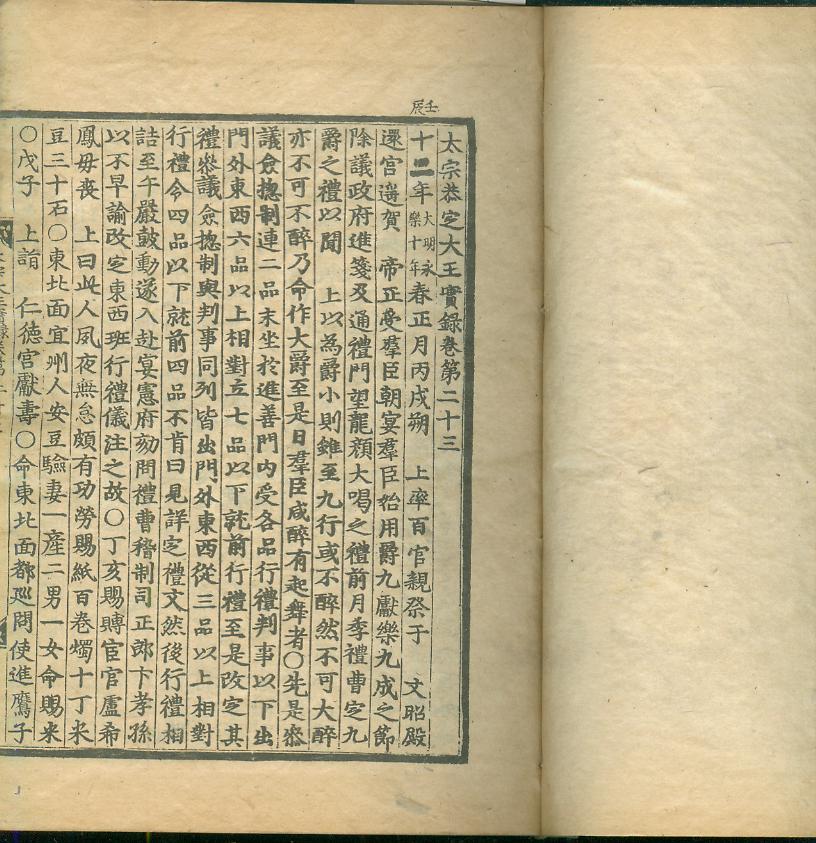 壬辰
太宗恭定大王實錄卷第二十三
十二年大明永樂十年春正月丙戌朔　上率百官親祭于　文昭殿
還宮遥賀　帝正受羣臣朝宴羣臣始用爵九獻樂九成之節
除議政府進箋及通禮門望龍顔大喝之禮前月季禮曹定九
爵之禮以聞　上以爲爵小則雖至九行或不醉然不可大醉
亦不可不醉乃命作大爵至是日羣臣咸醉有起舞者○先是叅
議僉摠制連二品末坐於進善門內受各品行禮判事以下出
門外東西六品以上相對立七品以下就前行禮至是改定其
禮叅議僉摠制與判事同列皆出門外東西從三品以上相對
行禮令四品以下就前四品不肯曰見詳定禮文然後行禮相
詰至午嚴鼓動遂入赴宴憲府劾問禮曹稽制司正郞卞孝孫
以不早諭改定東西班行禮儀注之故○丁亥賜賻宦官盧希
鳳母喪　上曰此人夙夜無怠頗有功勞賜紙百卷燭十丁米
豆三十石○東北面宜州人安豆驗妻一產二男一女命賜米
○戊子　上詣　仁德宮獻壽○命東北面都廵問使進鷹子